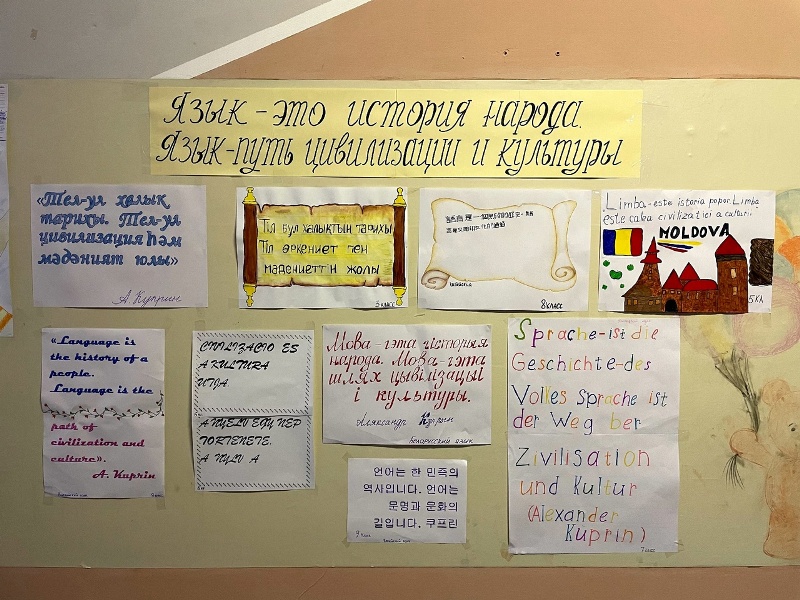 Язык – это история народа.
Язык–путь цивилизации и культуры
«Тел-ул халык
тарихы. Тел-ул
цивилизация һәм
мәдәният юлы»
А. Куприн
Тіл бұл халықтың тарихы
Тіл өркениет пен
мәдениеттің жолы
5 класс
8 класс
Limba-este istoria popor. Limba
este calea civilizatiei a culturi.
MOLDOVA
5 кл
«Language is
the history of a
people.
Language is the
path of
civilization and
culture».
A. Kuprin
CIVILIZACIO ES
A KULTURA
UTJA
A NYELV EGY NEP
TORTENETE.
A NYLV A
Мова–гэта гісторыя
народа. Мова–гэта
шлях цывілізацыі
і культуры.
Аляксандр Купрын
белорусский язык
언어는 한 민족의
역사입니다. 언어는
문명과 문화의
길입니다. 쿠프린
9 класс
Sprache-ist die
Geschichte-des
Volles Sprache ist
der Weg ber
Zivilisation
und Kultur
(Alexander
Kuprin)
7 класс